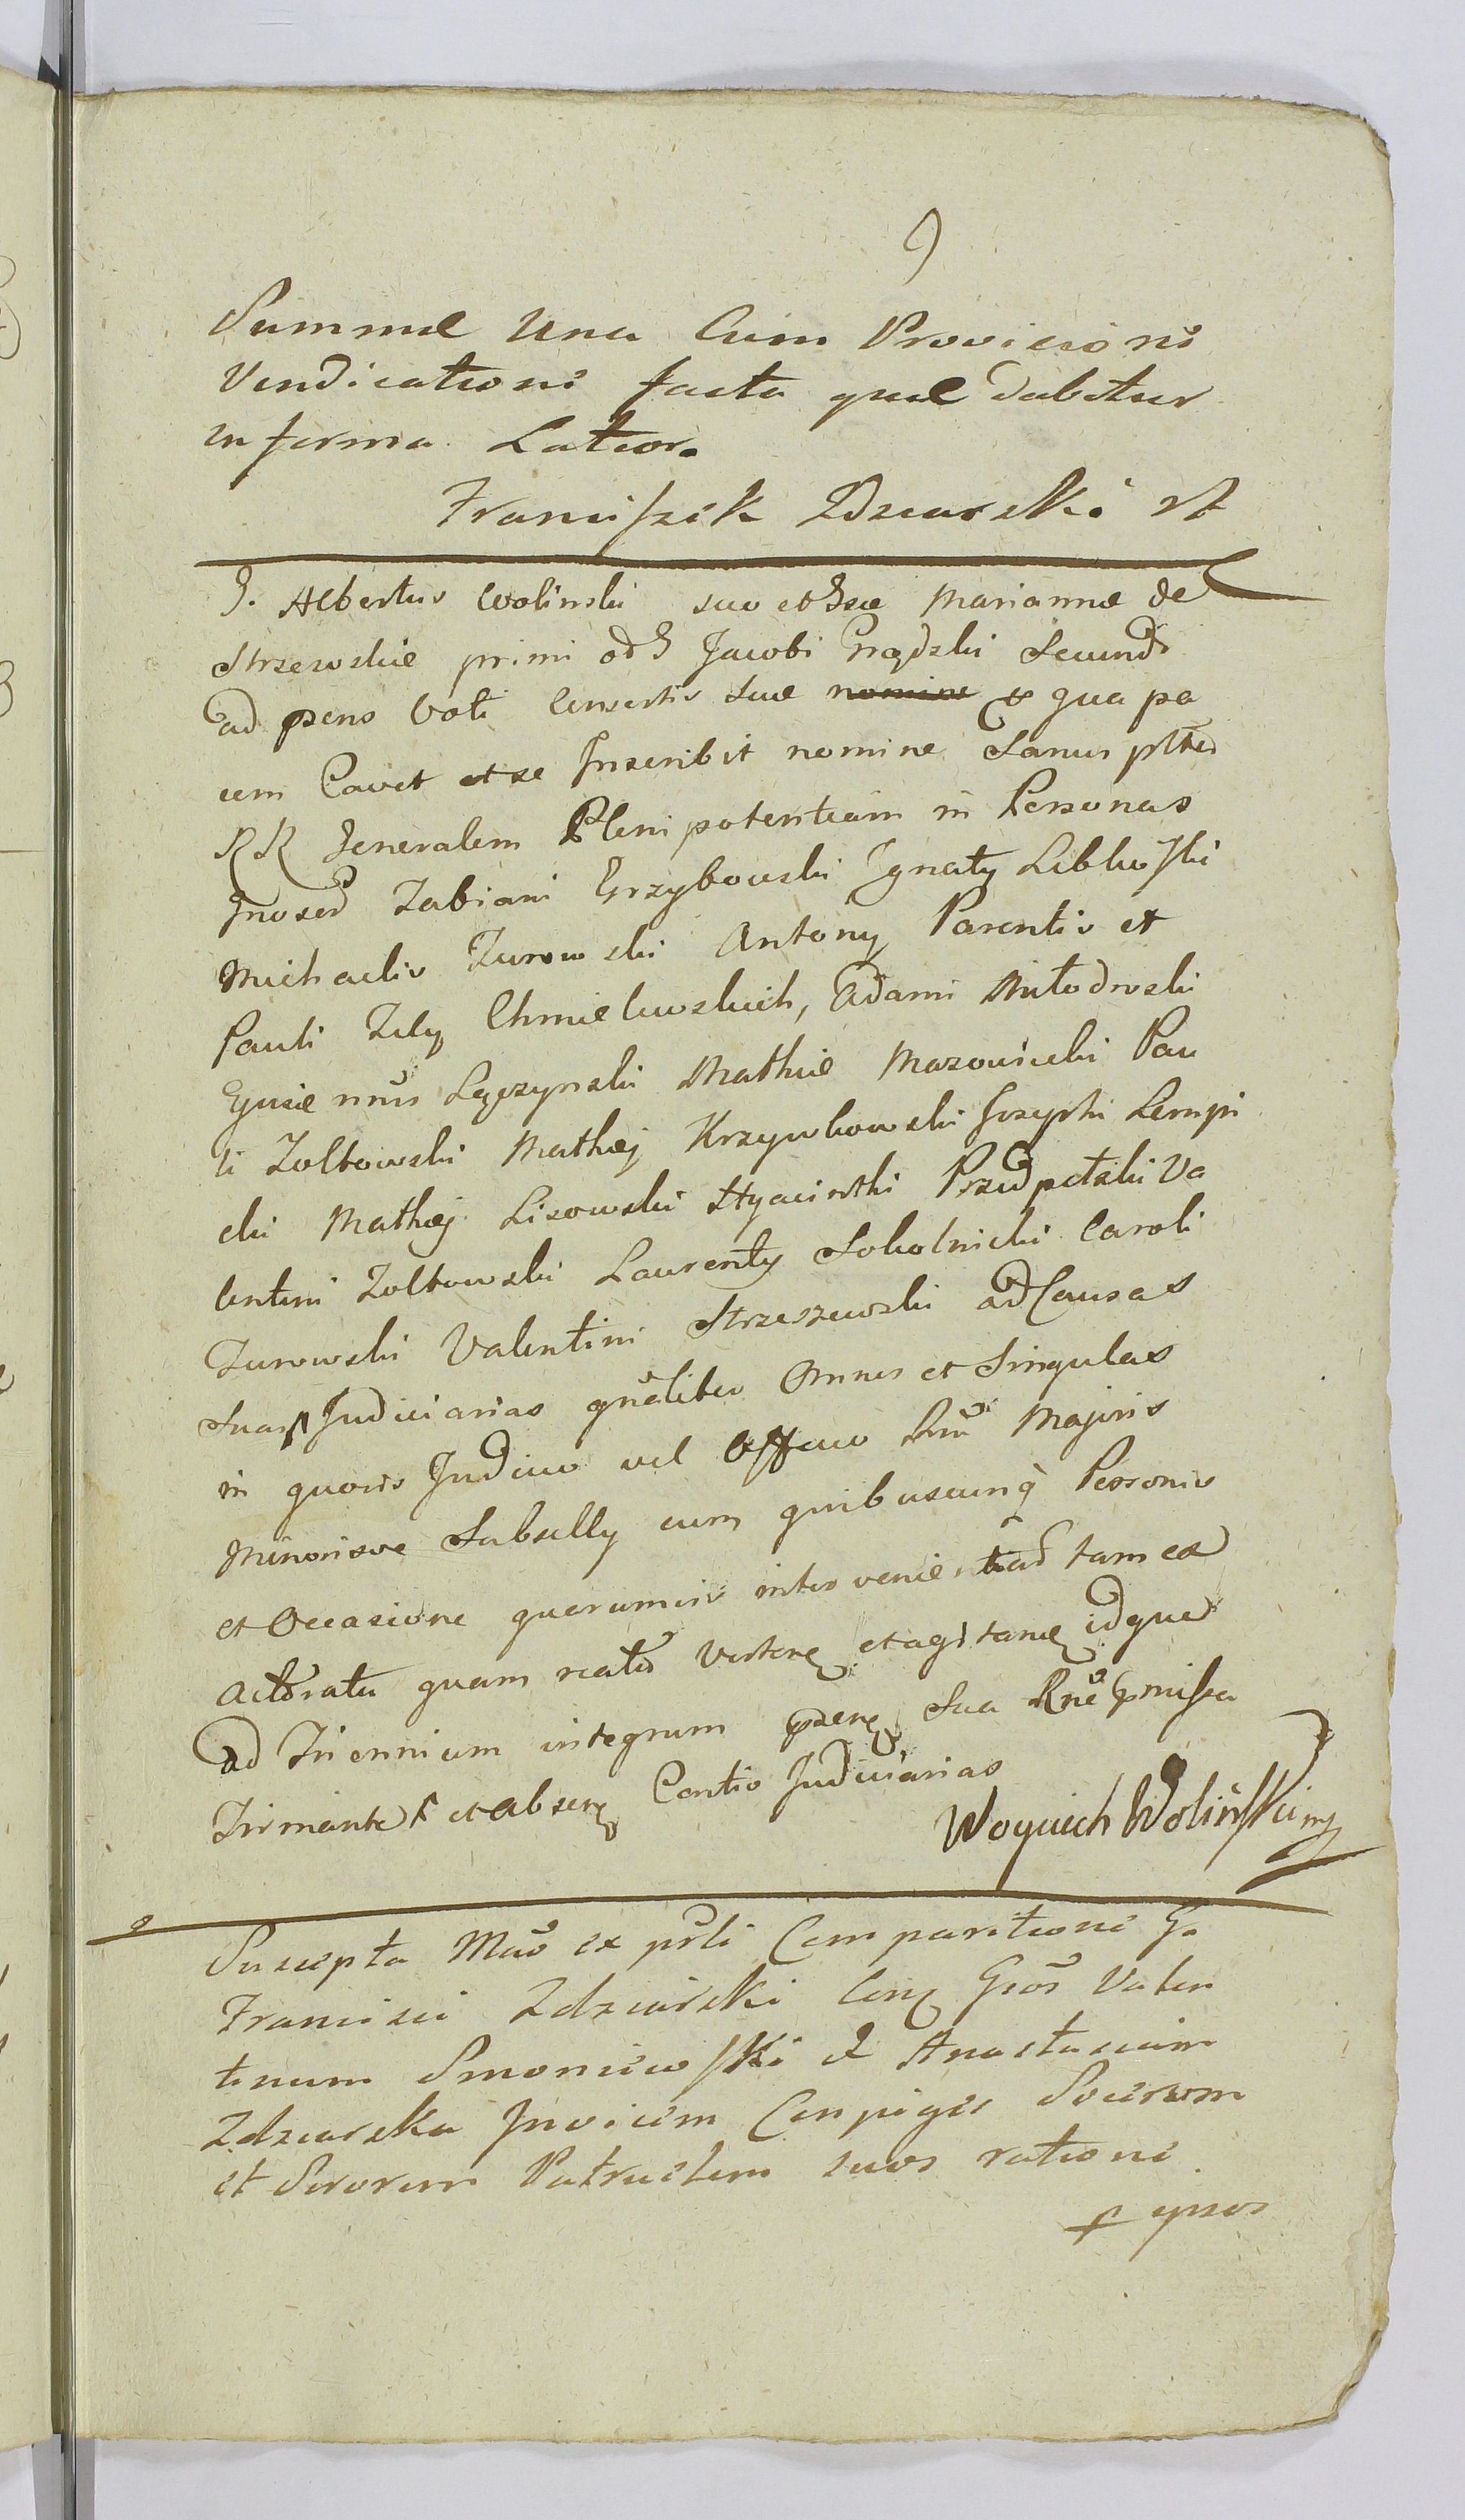 9
Summæ Una Cum Provisioni
Vendicationi facta quæ dabitur
in forma Latior.
Franciszek Zdziarski
G. Albertus Wolinski suo et Gsæ Mariannæ de
Strzeszewskie primi ad G Jacobi Grądzki Secundi
ad psens Voti Consortis Suæ nomine & qua pa
cem Cavet et se Inscribit nomine
RR Generalem Plenipotentiam in Personas
Gnosed Fabiani Grzybowski Ignaty
Michaelis Zurowski Antony Parentis et
Pauli Fily Chmielewskich, Adami Młodwski
Lęczynski Mathiæ Mazowiecki Pau
li Zoltowski Mathæj Krzywkowski Josephi Lempi
cki Mathæj Lisowski Hyacinthi Przedpełski Va
lentini Zoltowski Laurenty Sokolnicki Caroli
Zurowski Valentini Strzeszewski ad Causas
Suas Judiciarias gnãliter Omnes et Singulas
in quovis Judicio vel Officio Rni Majoris
Minorisve Subselly cum quibuscunq Personis
et Occasione quarumvis intervenientiad tam ex
actoratu quam reatu vertene et agitane idque
ad Triennium integrum psene Sua Rne pmissa
Firmante et absene Contis Judiciarias
Woyciech Wolinski mp
Suscepta Mno ex psãli Comparitione G.
Francisci Zdziarski Conq Gsos Valen
tinum Smoniewski & Anastasiam
Zdziarska Invicem Conjuges Socerum
et Sororem Patruelem suos rationi
ypsos